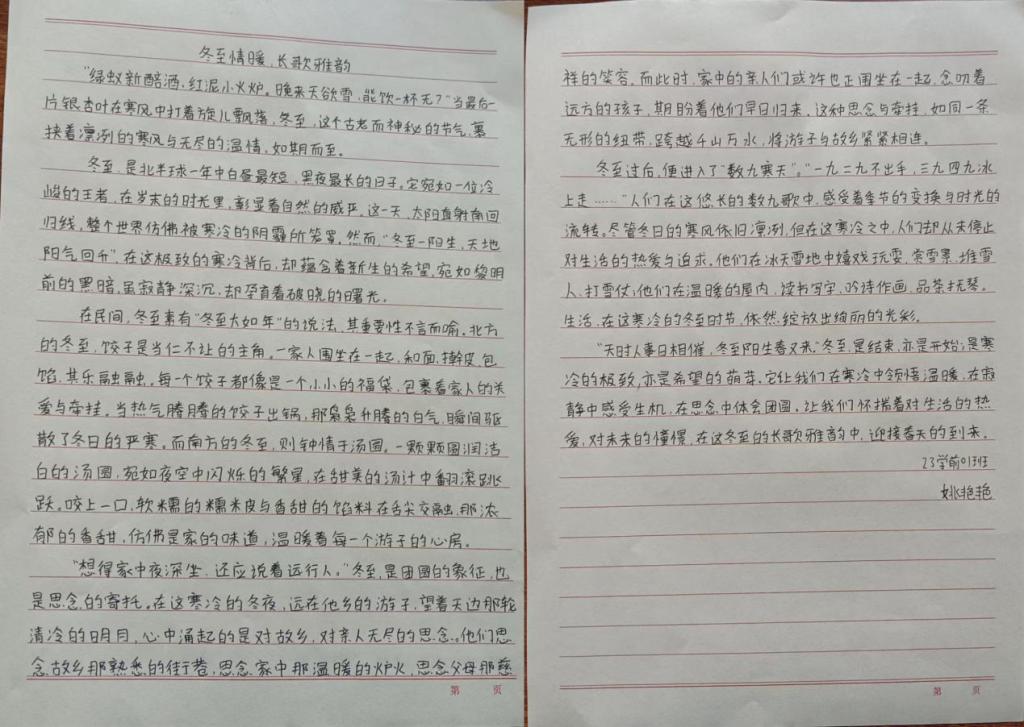 冬至情暖,长歌雅韵
“绿蚁新醅酒,红泥小火炉。晚来天欲雪,能饮一杯无?”当最后一
片银杏叶在寒风中打着旋儿飘落,冬至,这个古老而神秘的节气,裹
挟着凛冽的寒风与无尽的温情,如期而至。
冬至,是北半球一年中白昼最短,黑夜最长的日子。它宛如一位冷
峻的王者,在岁末的时光里,彰显着自然的威严。这一天,太阳直射南回
归线,整个世界仿佛被寒冷的阴霾所笼罩。然而,“冬至一阳生,天地
阳气回升”,在这极致的寒冷背后,却蕴含着新生的希望,宛如黎明
前的黑暗,虽寂静深沉,却孕育着破晓的曙光。
在民间,冬至素有“冬至大如年”的说法,其重要性不言而喻。北方
的冬至,饺子是当仁不让的主角。一家人围坐在一起,和面,擀皮,包
馅,其乐融融。每一个饺子都像是一个小小的福袋,包裹着家人的关
爱与牵挂。当热气腾腾的饺子出锅,那袅袅升腾的白气,瞬间驱
散了冬日的严寒。而南方的冬至,则钟情于汤圆。一颗颗圆润洁
白的汤圆,宛如夜空中闪烁的繁星,在甜美的汤汁中翻滚跳
跃。咬上一口,软糯的糯米皮与香甜的馅料在舌尖交融,那浓
郁的香甜,仿佛是家的味道,温暖着每一个游子的心房。
“想得家中夜深坐,还应说着远行人。”冬至,是团圆的象征,也
是思念的寄托。在这寒冷的冬夜,远在他乡的游子,望着天边那轮
清冷的明月,心中涌起的是对故乡,对亲人无尽的思念。他们思
念故乡那熟悉的街巷,思念家中那温暖的炉火,思念父母那慈
第 页
祥的笑容。而此时,家中的亲人们或许也正围坐在一起,念叨着
远方的孩子,期盼着他们早日归来。这种思念与牵挂,如同一条
无形的纽带,跨越千山万水,将游子与故乡紧紧相连。
冬至过后,便进入了“数九寒天”。“一九二九不出手,三九四九冰
上走……”人们在这悠长的数九歌中,感受着季节的变换与时光的
流转。尽管冬日的寒风依旧凛冽,但在这寒冷之中,人们却从未停止
对生活的热爱与追求。他们在冰天雪地中嬉戏玩耍,赏雪景、堆雪
人、打雪仗;他们在温暖的屋内,读书写字,吟诗作画,品茶抚琴。
生活,在这寒冷的冬至时节,依然绽放出绚丽的光彩。
“天时人事日相催,冬至阳生春又来。”冬至,是结束,亦是开始;是寒
冷的极致,亦是希望的萌芽。它让我们在寒冷中领悟温暖,在寂
静中感受生机,在思念中体会团圆。让我们怀揣着对生活的热
爱,对未来的憧憬,在这冬至的长歌雅韵中,迎接春天的到来。
23学前01班
姚艳艳
第 页